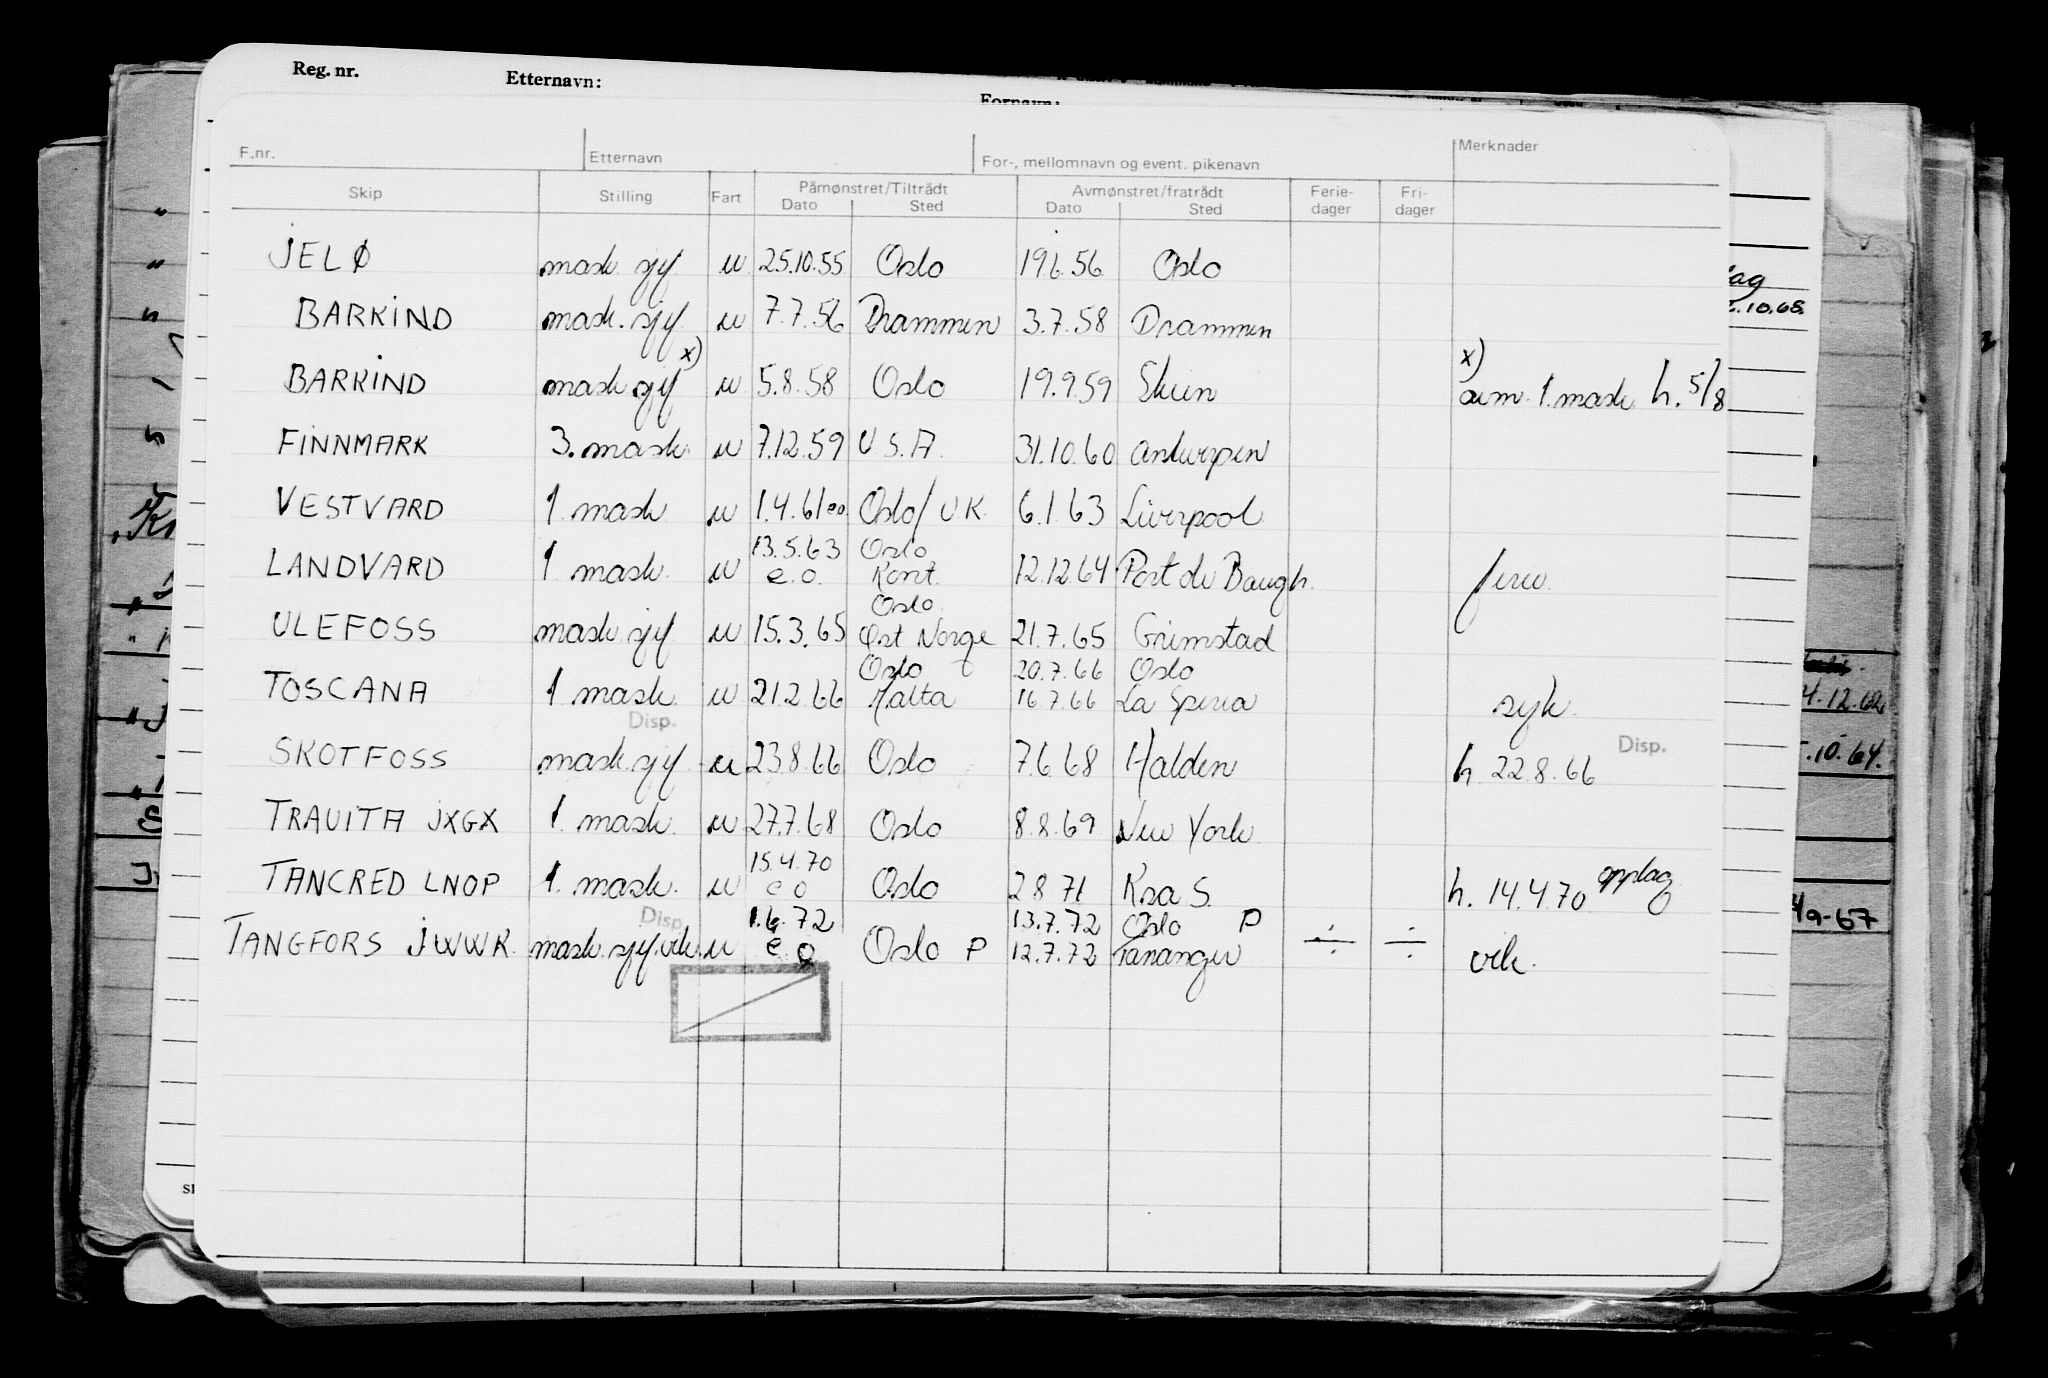 Reg. nr. Etternavn:
Fornavn:
F.nr. Etternavn For-, mellomnavn og event. pikenavn Merknader
Skip Stilling Fart Påmønstret/Tiltrådt Avmønstret/fratrådt Ferie- Fri-
Dato Sted Dato Sted dager dager
JELØ mask sjef u 25.10.55 Oslo 19.6.56 Oslo
BARKIND mask. sjef u 7.7.56 Drammen 3.7.58 Drammen
x) x)
BARKIND mask sjef u 5.8.58 Oslo 19.9.59 Skien avm. 1. mask h. 5/8
FINNMARK 3. mask. u 7.12.59 U.S.A. 31.10.60 Antwerpen
VESTVARD 1. mask u 1.4.61 eo Oslo/UK. 6.1.63 Liverpool
13.5.63 Oslo
LANDVARD 1 mask. u e.o. Kont. 12.12.64 Port de Baugh. ferie.
Oslo.
ULEFOSS mask sjef u 15.3.65 Øst Norge 21.7.65 Grimstad
Oslo 20.7.66 Oslo
TOSCANA 1 mask. u 21.2.66 Malta 16.7.66 La Spezia syk.
Disp. Disp.
SKOTFOSS mask. sjef. u 23.8.66 Oslo 7.6.68 Halden h. 22.8.66
TRAVITA JXGX 1. mask. u 27.7.68 Oslo 8.8.69 New York
15.4.70 opplag
TANCRED LNOP 1. mask. u e o Oslo 2 8 71 Kra S. h. 14.4.70
Disp. 1.6.72 13.7.72 Oslo P
TANGFORS JWWK. mask. sjef. vik. u e.o Oslo P 12.7.72 Tananger ÷ ÷ vik.